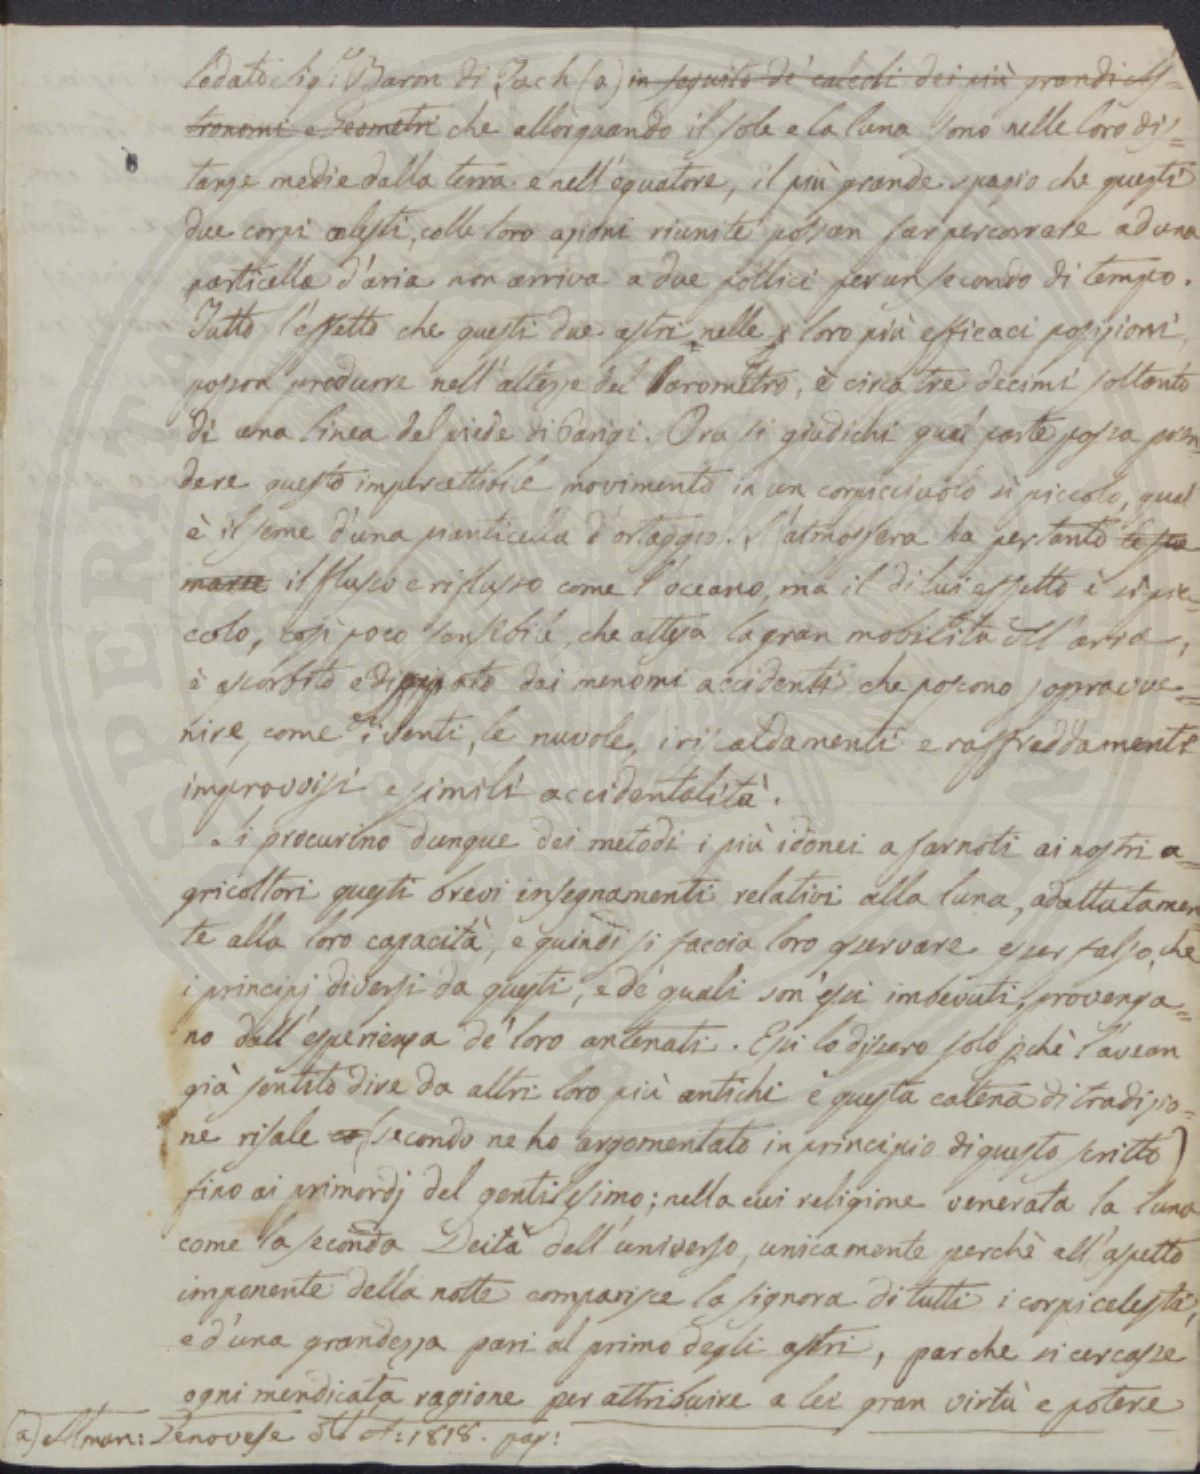 lodato Sig.r Baron di Zach (a) in seguito de' calcoli dei più grandi As=
tronomi e Geometri che allorquando il sole e la luna sono nelle loro dis=
tanze medie dalla terra e nell'equatore, il più grande spazio che questi
due corpi celesti, colle loro azioni riunite possan far percorrere ad una
particella d'aria non arriva a due pollici per un secondo di tempo.
Tutto l'effetto che questi due astri nelle loro più efficaci posizioni
posson produrre nell'altezze del Barometro, è circa tre decimi soltanto
di una linea del piede di Parigi. Ora si giudichi qual parte possa pren=
dere questo impercettibile movimento in un corpicciuolo sì piccolo, qual
è il seme d'una pianticella d'ortaggio. L'atmosfera ha pertanto le sue
maree il flusso e riflusso come l'oceano, ma il di lui effetto è sì pic=
colo, così poco sensibile, che attesa la gran mobilità dell'aria,
è assorbito e dissipato dai menomi accidenti che possono sopravve=
nire, come i venti, le nuvole, i riscaldamenti e raffreddamenti
improvvisi e simili accidentalità.
Si procurino dunque dei metodi i più idonei a far noti ai nostri a=
gricoltori questi brevi insegnamenti relativi alla luna, adattatamen
te alla loro capacità, e quindi si faccia loro osservare esser falso, che
i principj diversi da questi, e de' quali son'essi imbevuti, provenga=
no dall'esperienza de' loro antenati. Essi lo dissero solo pchè l'avean
già sentito dire da altri loro più antichi e questa catena di tradizio=
ne risale (secondo ne ho argomentato in principio di questo scritto)
fino ai primordj del gentilesimo; nella cui religione venerata la luna
come la seconda Deità dell'universo, unicamente perchè all'aspetto
imponente della notte comparisce la signora di tutti i corpi celesti,
e d'una grandezza pari al primo degli astri, par che si cercasse
ogni mendicata ragione per attribuire a lei gran virtù e potere
(a) Alman: Genovese 1818. pag: